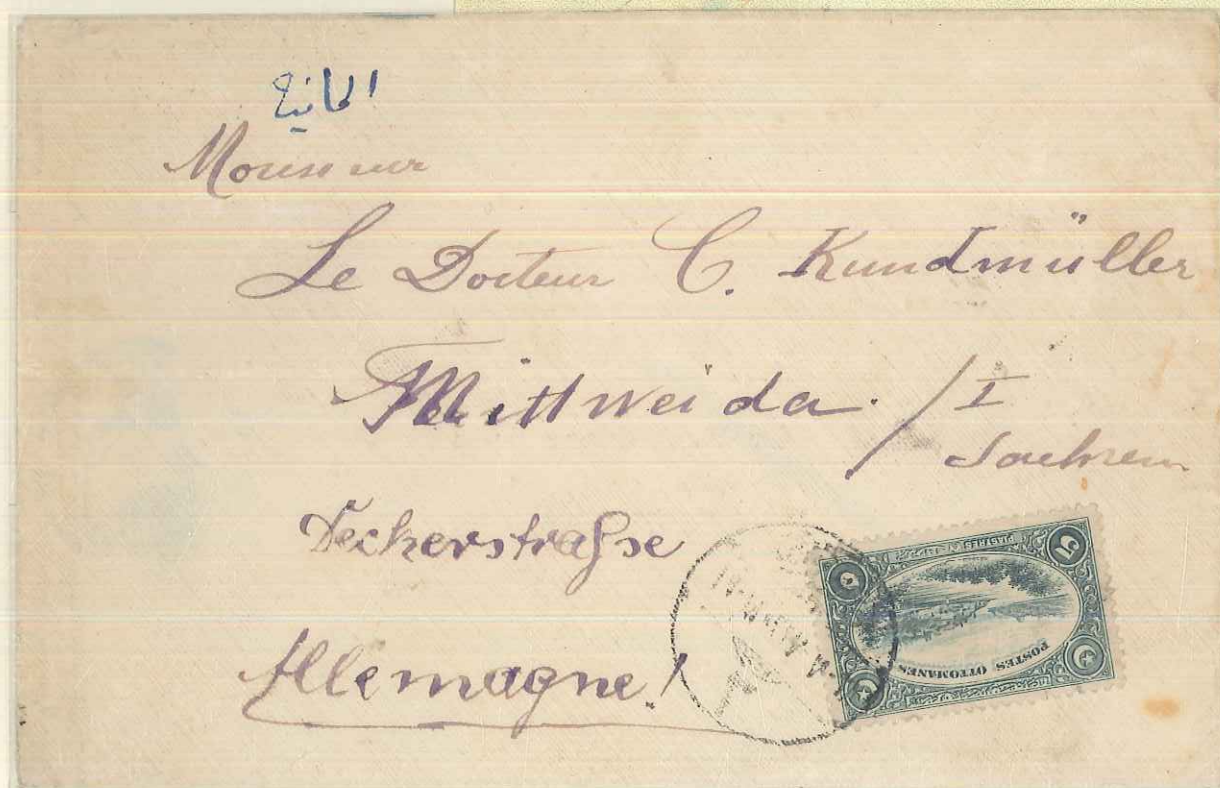 المانيا
Monsieur
Le Docteur C. Kundmüller
Mittweida. / I
Sachsen
Deckerstraße
Allemagne!
5 5
POSTES OTTOMANES